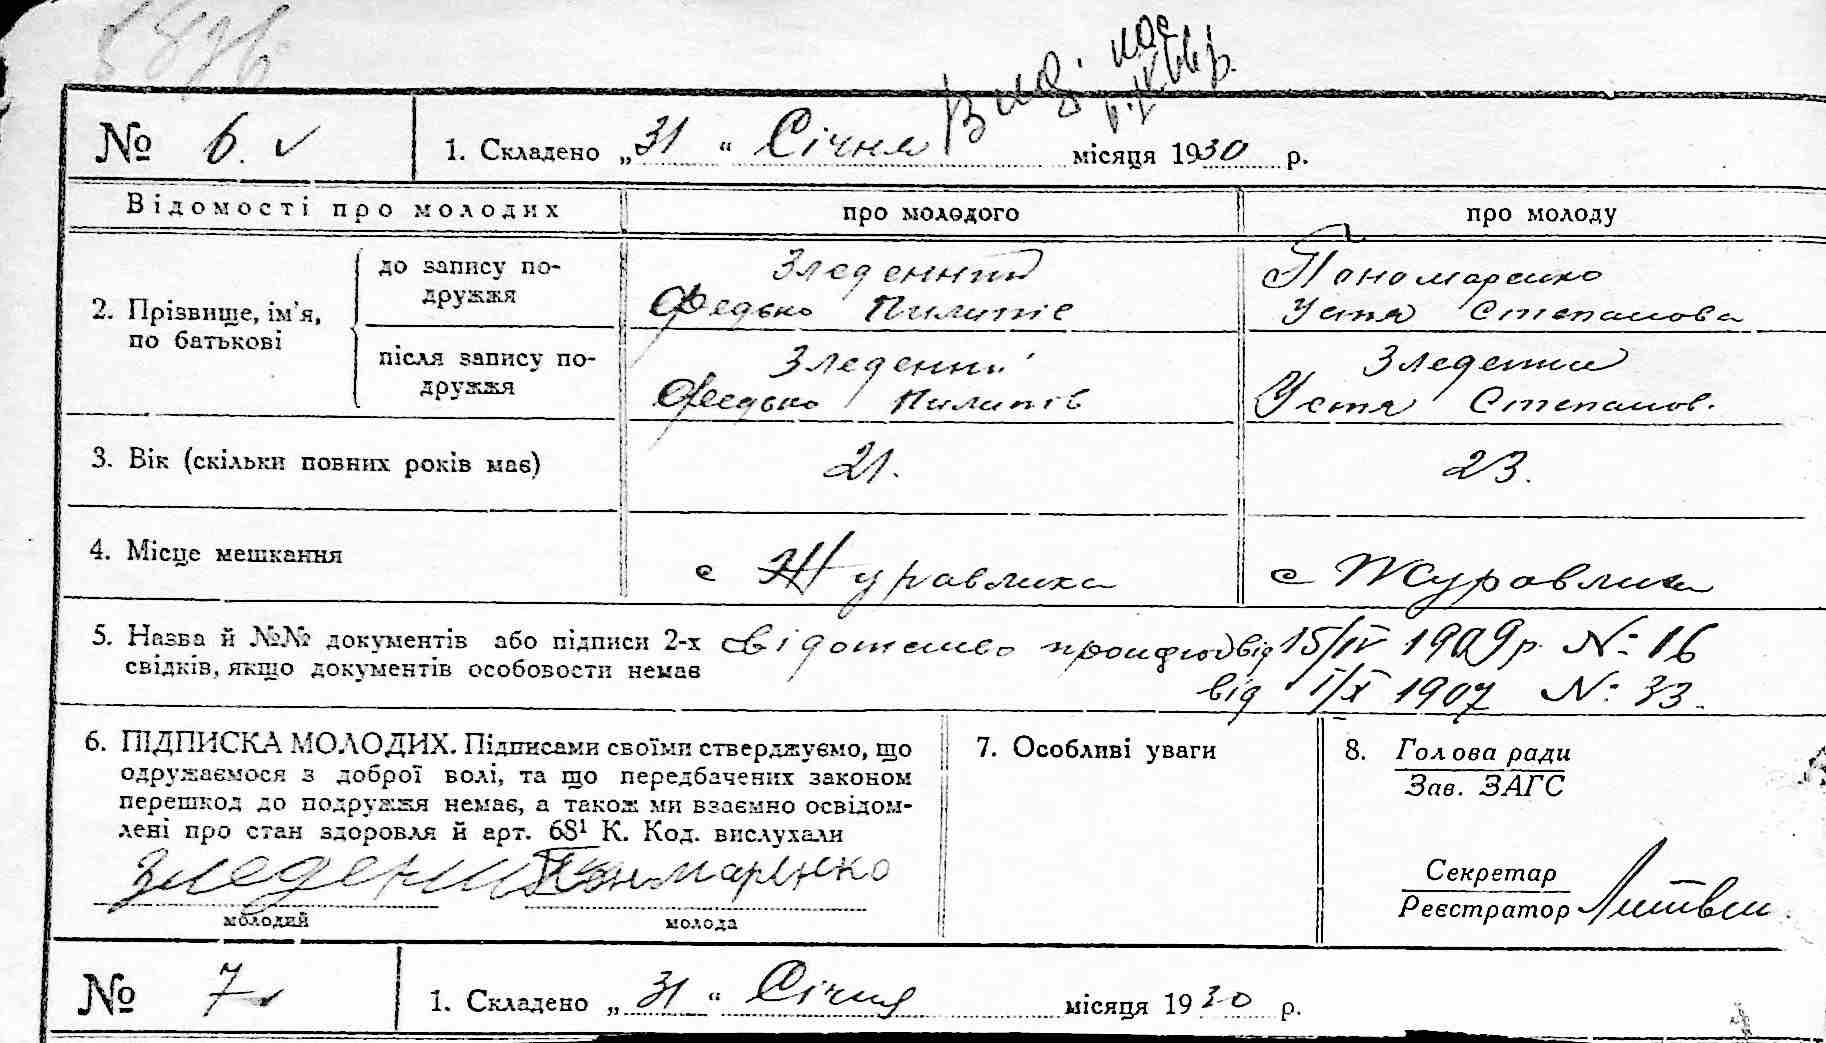 № 6. 1. Складено „31“ Січня місяця 1930 р.
Відомості про молодих про молодого про молоду
2. Прізвище, ім'я, по батькові
до запису по-
дружжя
Зледенний
Федько Пилипів
Пономаренко
Устя Степанова
після запису по-
дружжя
Зледенний
Федько Пилипів
Зледенна
Устя Степанов.
3. Вік (скільки повних років має) 21. 23.
4. Місце мешкання с Журавлиха с Журавлиха
5. Назва й №№ документів або підписи 2-х
свідків, якщо документів особовости немає
від 15/IV 1909 р. №: 16
від 1/X 1907 №: 33.
6. ПІДПИСКА МОЛОДИХ. Підписами своїми стверджуємо, що
одружаємося з доброї волі, та що передбачених законом
перешкод до подружжя немає, а також ми взаємно освідом-
лені про стан здоровля й арт. 68¹ К. Код. вислухали
Зледенний Пономаренко
молодий молода
7. Особливі уваги
8. Голова ради
Зав. ЗАГС
Секретар
Реєстратор Литвин
№ 7 1. Складено „31“ Січня місяця 1930 р.